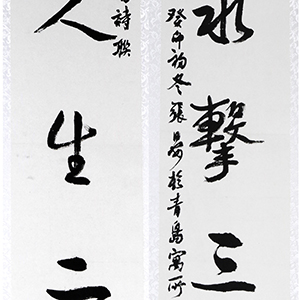 水擊三
癸卯初冬張於青島寓所
詩聯
人生二